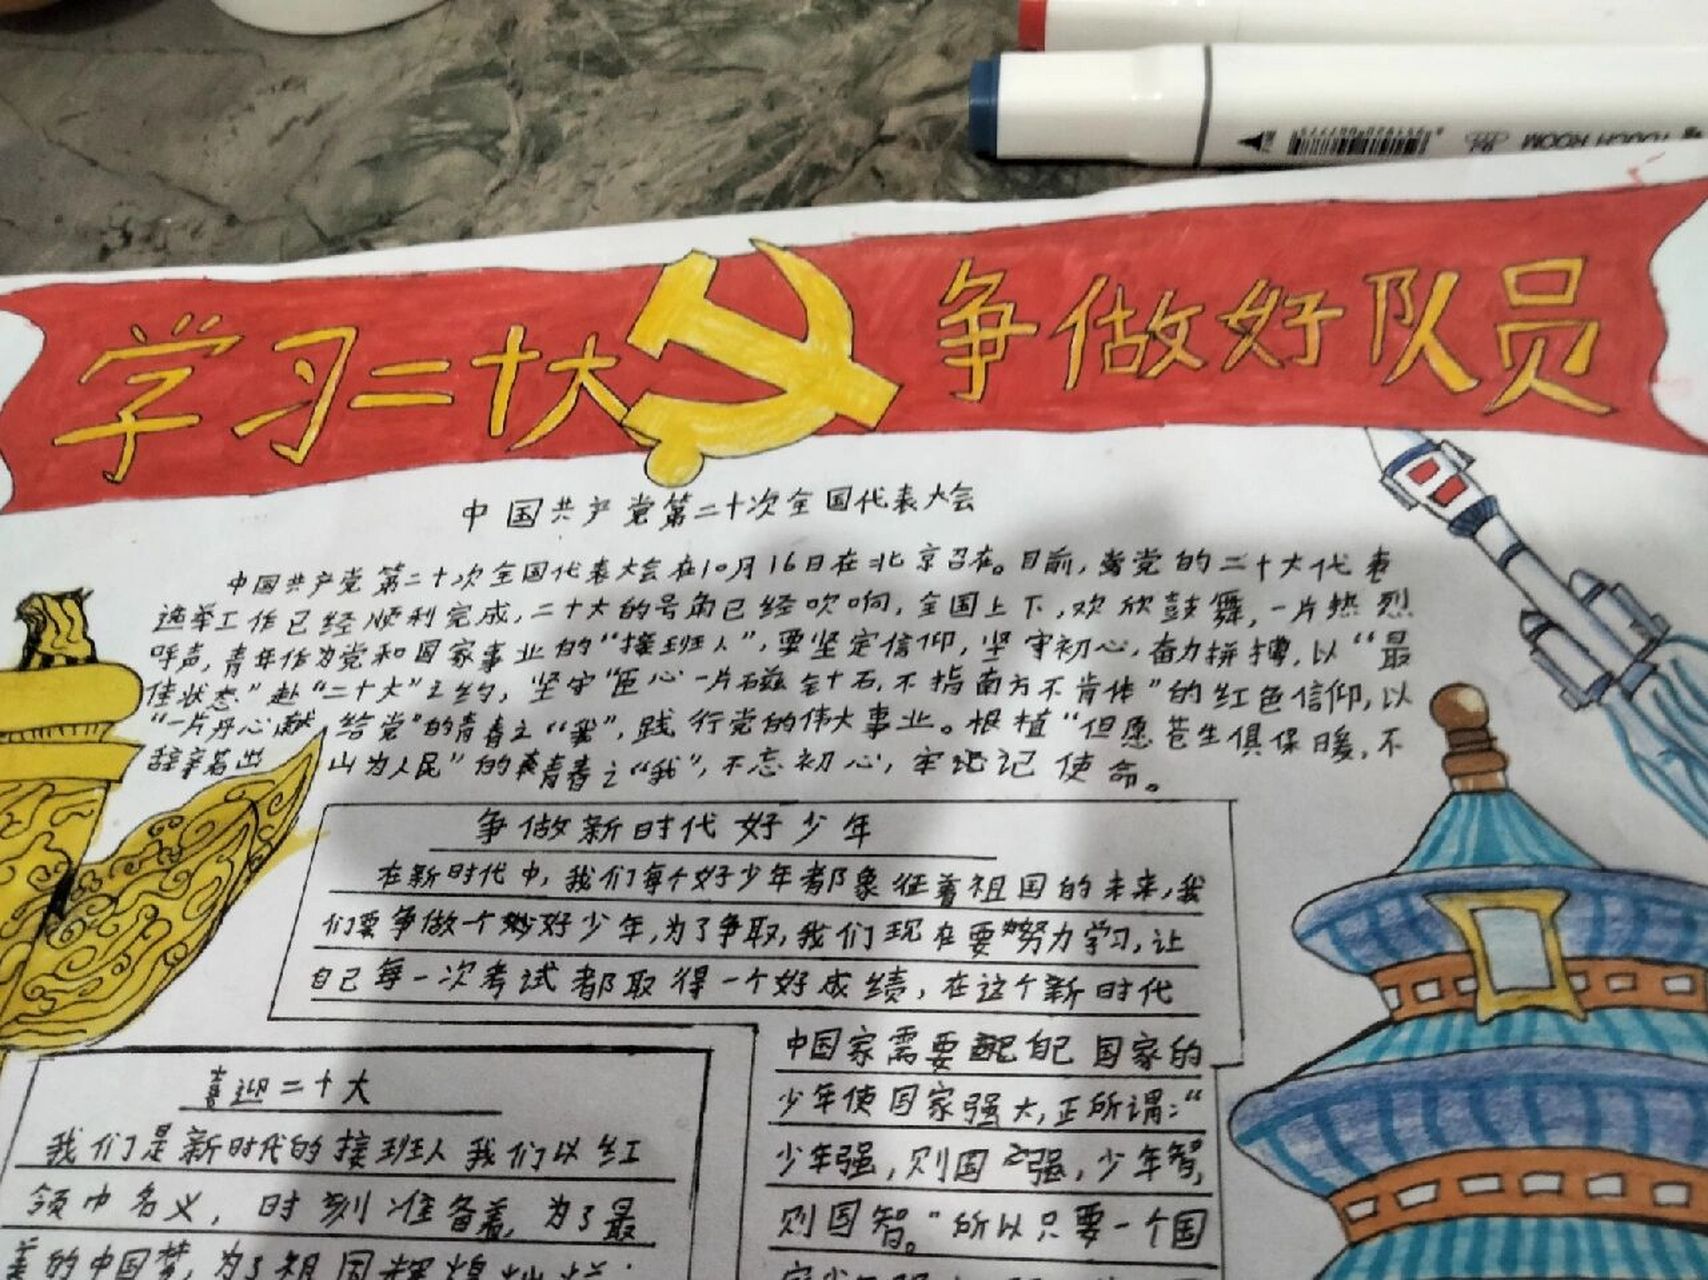 TOUCH ROOM
学习二十大 争做好队员
中国共产党第二十次全国代表大会
中国共产党第二十次全国代表大会在10月16日在北京召在。目前，党的二十大代表
选举工作已经顺利完成，二十大的号角已经吹响，全国上下，欢欣鼓舞，一片热烈
呼声，青年作为党和国家事业的“接班人”，要坚定信仰，坚守初心，奋力拼搏，以“最
佳状态”赴“二十大”之约，坚守“臣心一片磁针石，不指南方不肯休”的红色信仰，以
“一片丹心献给党”的青春之“我”，践行党的伟大事业。根植“但愿苍生俱保暖，不
辞辛苦出山为人民”的青春之“我”，不忘初心，牢记使命。
争做新时代好少年
在新时代中，我们每个好少年都象征着祖国的未来，我
们要争做一个好少年，为了争取，我们现在要努力学习，让
自己每一次考试都取得一个好成绩，在这个新时代
中国家需要自己国家的
少年使国家强大，正所谓：“
少年强，则国之强，少年智，
则国智。”所以只要一个国
喜迎二十大
我们是新时代的接班人我们以红
领巾名义，时刻准备着，为了最
美的中国梦，为了祖国辉煌灿烂